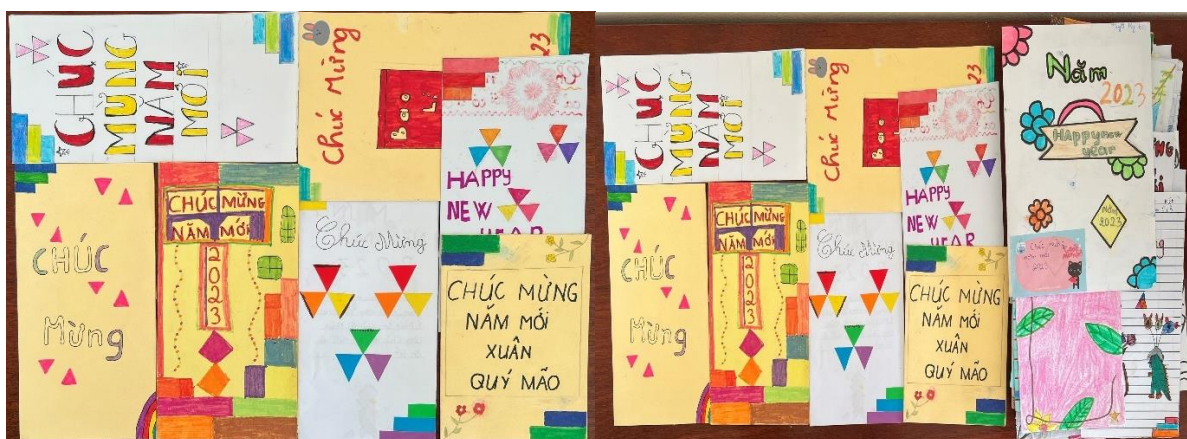 CHÚC
MỪNG
NĂM
MỚI
Chúc Mừng
Bao
Lì
23
HAPPY
NEW
CHÚC
Mừng
CHÚC MỪNG
NĂM MỚI
2023
Chúc Mừng
CHÚC MỪNG
NĂM MỚI
XUÂN
QUÝ MÃO
CHÚC
MỪNG
NĂM
MỚI
Chúc Mừng
Bao
HAPPY
NEW
YEAR
CHÚC
Mừng
CHÚC MỪNG
NĂM MỚI
2023
Chúc Mừng
CHÚC MỪNG
NĂM MỚI
XUÂN
QUÝ MÃO
Năm
2023
HAppy new
year
Năm
2023